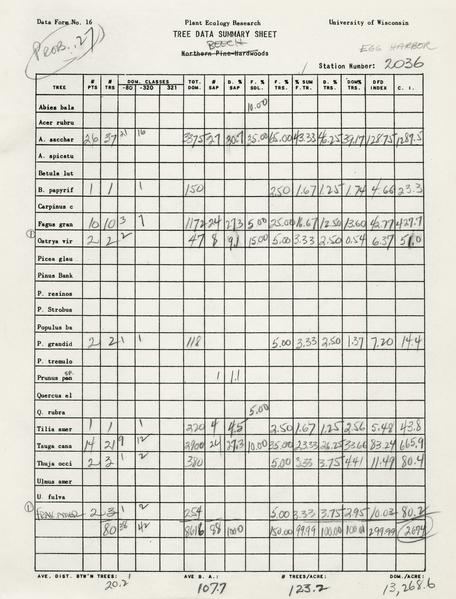 Data Form No. 16 Plant Ecology Research University of Wisconsin
TREE DATA SUMMARY SHEET
PROB. 27
BEECH
Northern Pine-Hardwoods
EGG HARBOR
Station Number: 2036
DOM. CLASSES
TREE # PTS # TRS -80 -320 321 TOT. DOM. # SAP D. % SAP F. % SDL. F. % TRS. % SUM F.TR. D. % TRS. DOM% TRS. DFD INDEX C. I.
Abies bala 10.00
Acer rubru
A. sacchar 26 37 21 16 3375 27 30.7 35.00 65.00 43.33 46.25 39.17 128.75 1287.5
A. spicatu
Betula lut
B. papyrif 1 1 1 150 2.50 1.67 1.25 1.74 4.66 23.3
Carpinus c
Fagus gran 10 10 3 7 1172 24 27.3 5.00 25.00 16.67 12.50 13.60 42.77 427.7
1 Ostrya vir 2 2 2 47 8 9.1 15.00 5.00 3.33 2.50 0.54 6.37 51.0
Picea glau
Pinus Bank
P. resinos
P. Strobus
Populus ba
P. grandid 2 2 1 1 118 5.00 3.33 2.50 1.37 7.20 14.4
P. tremulo
Prunus sp. pen 1 1.1
Quercus el
Q. rubra 5.00
Tilia amer 1 1 1 220 4 4.5 2.50 1.67 1.25 2.56 5.48 43.8
Tsuga cana 14 21 9 12 2900 24 27.3 10.00 35.00 23.33 26.25 33.66 83.24 665.9
Thuja occi 2 3 1 2 380 5.00 3.33 3.75 4.41 11.49 80.4
Ulmus amer
U. fulva
1 2 3 1 2 254 5.00 3.33 3.75 2.95 10.03 80.2
80 38 42 8616 88 100.0 150.00 99.99 100.00 100.00 299.99 2674
AVE. DIST. BTW'N TREES: 20.2 AVE B. A.: 107.7 # TREES/ACRE: 123.2 DOM./ACRE: 13,268.6